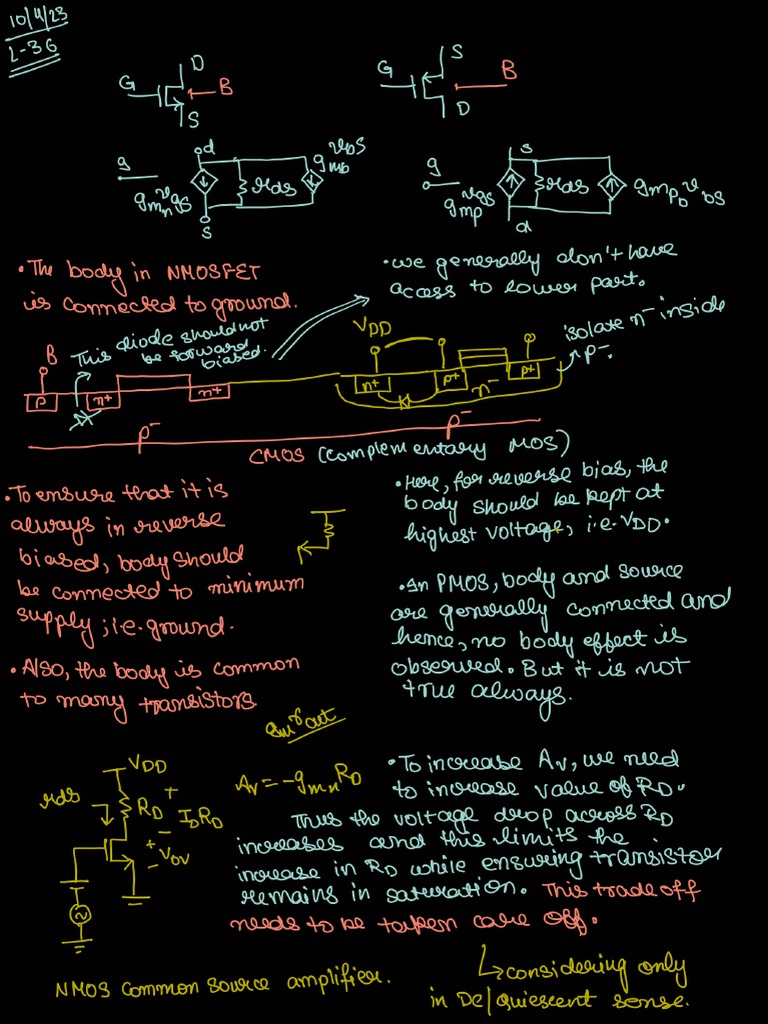 10/4/23
L-36
D
G
B
S
S
G
B
D
g
d
gmn vgs
rds
gmb vbs
s
g
s
gmp vgs
rds
gmpb vbs
d
• The body in NMOSFET
is connected to ground.
• we generally don't have
acess to lower part.
B
This diode should not
be forward
biased.
VDD
isolate n- inside
p-.
p
n+
n+
n+
p+
n-
p+
p-
p-
CMOS (complementary MOS)
• To ensure that it is
always in reverse
biased, body should
be connected to minimum
supply; i.e. ground.
• Also, the body is common
to many transistors
• Here, for reverse bias, the
body should be kept at
highest voltage, i.e. VDD.
• In PMOS, body and source
are generally connected and
hence, no body effect is
observed. But it is not
true always.
VDD
rds
RD
+
IDRD
-
+
VOV
-
Av = -gmn RD
• To increase Av, we need
to increase value of RD.
Thus the voltage drop across RD
increases and this limits the
increase in RD while ensuring transistor
remains in saturation. This tradeoff
needs to be taken care off.
↳ considering only
in DC/quiescent sense.
NMOS Common source amplifier.